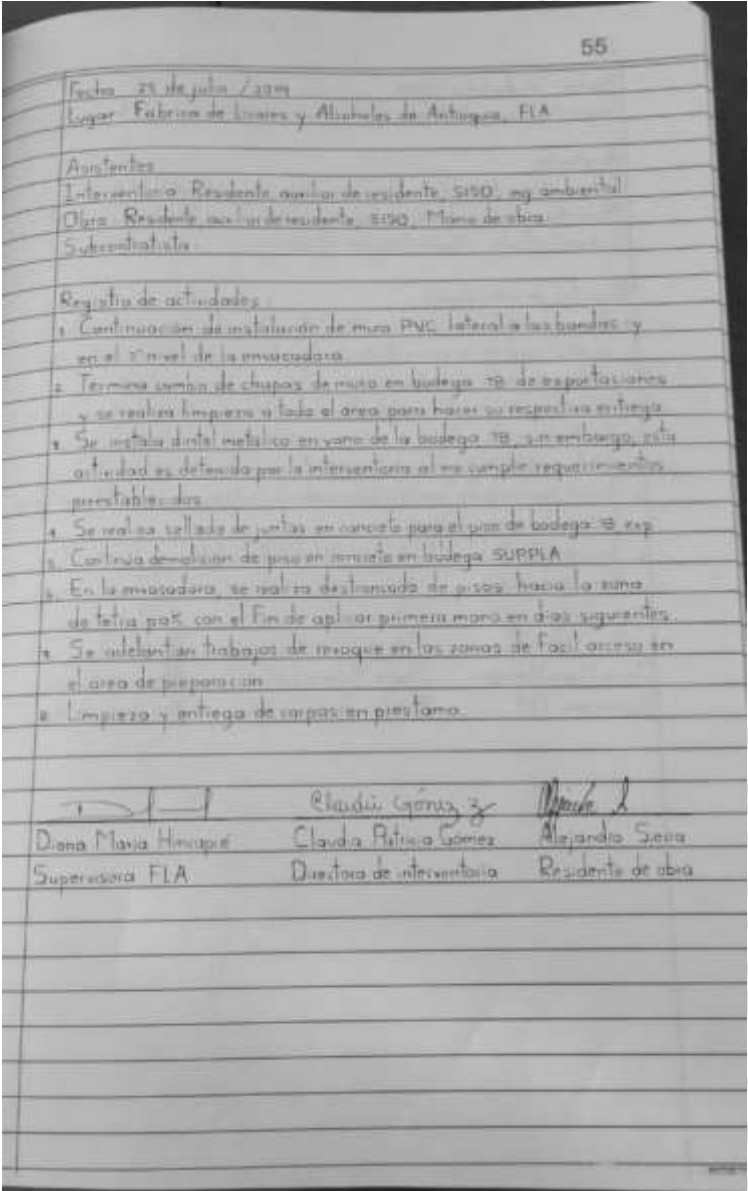 55
Fecha de julio / 2019
Lugar Fabrica de Licores y Alcoholes de Antioquia, FLA
Asistentes
Interventoria Residente, auxiliar de residente, SISO, ing ambiental
Obra Residente, auxiliar de residente, SISO, Mano de obra
Subcontratista
Registro de actividades
1 Continuación de instalación de muro PVC lateral a las bandas y
en el nivel de la envasadora
2 Termina cambio de chapas de muro en bodega 18 de exportaciones
y se realiza limpieza a toda el area para hacer su respectiva entrega
3 Se instala dintel metalico en vano de la bodega 18, sin embargo, esta
actividad es detenida por la interventoria al no cumplir requerimientos
preestablecidos
4 Se realiza sellado de juntas en concreto para el piso de bodega 18 exp
5 Continua demolicion de piso en concreto en bodega SUPPLA
6 En la envasadora, se realiza destroncado de pisos hacia la zona
de tetra pak con el fin de aplicar primera mano en dias siguientes
7 Se adelantan trabajos de revoque en las zonas de facil acceso en
el area de preparacion
8 Limpieza y entrega de carpas en prestamo
Claudia Gómez
Diana Maria Hincapié Claudia Patricia Gómez Alejandro Sierra
Supervisora FLA Directora de interventoria Residente de obra